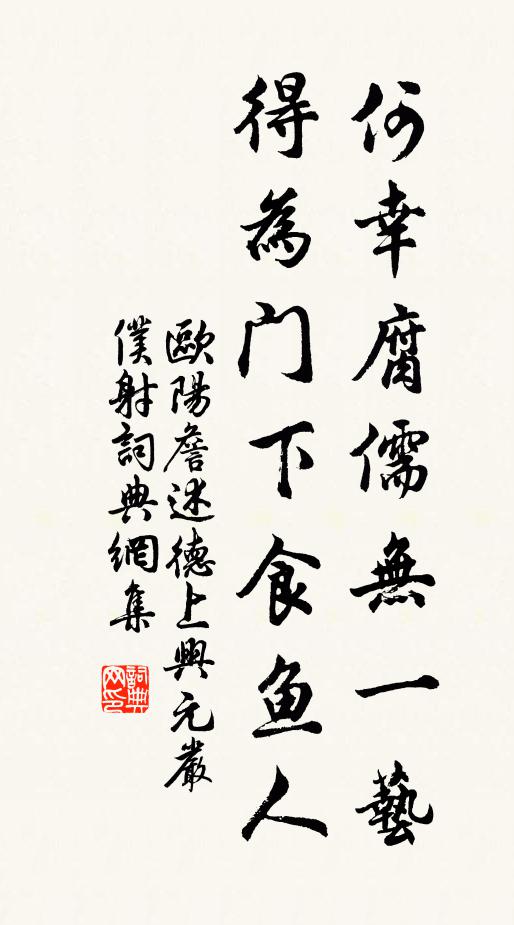 何幸腐儒無一藝
得為门下食鱼人
歐陽詹述德上興元嚴
僕射詞典網集
詞典
网印